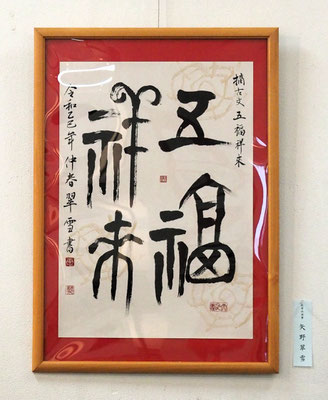 摘古文 五福祥来
五福
祥来
令和乙巳年 仲春 翠雪書
矢野翠雪